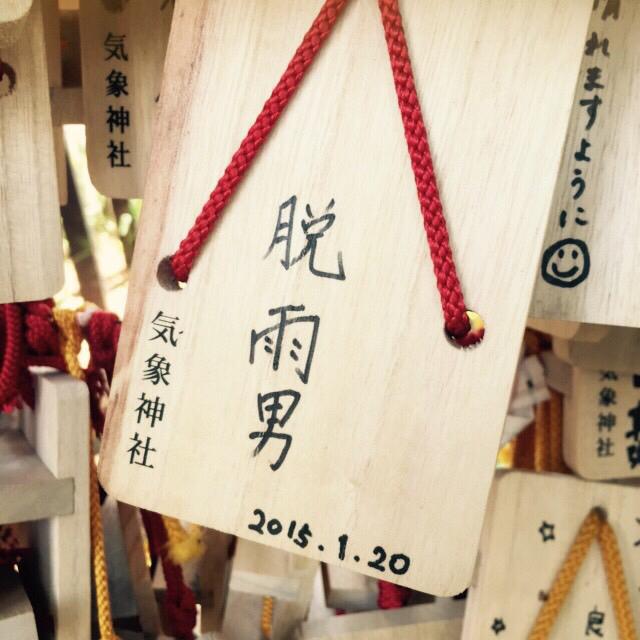 脱雨男
気象神社
2015.1.20
気象神社
れますように
気象神社
良